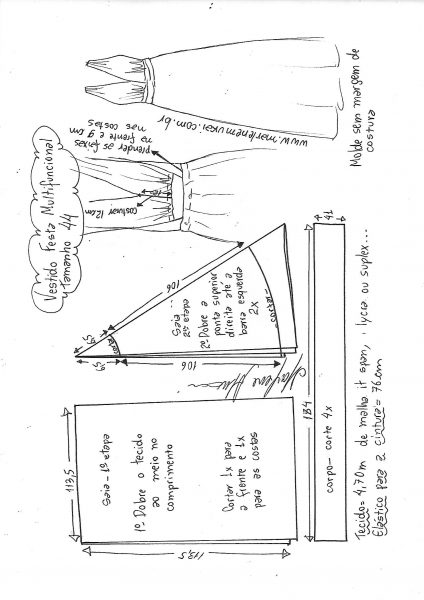 Vestido Festa Multifuncional
tamanho 44
prender as faixas
na frente e 9 cm
nas costas
costurar 12 cm
www.marlenemukai.com.br
Molde sem margem de
costura
Saia - 1ª etapa
1º Dobre o tecido
ao meio no
comprimento
Cortar 1x para
a frente e 1x
para as costas
113,5
113,5
Saia
2ª etapa
2º Dobre a
ponta superior
direita até a
barra esquerda
2X
cortar
cortar
106
106
Marlene Mukai
corpo - corte 4x
184
Tecido = 4,70 m de malha it span, lycra ou suplex...
Elástico para a cintura = 76 cm